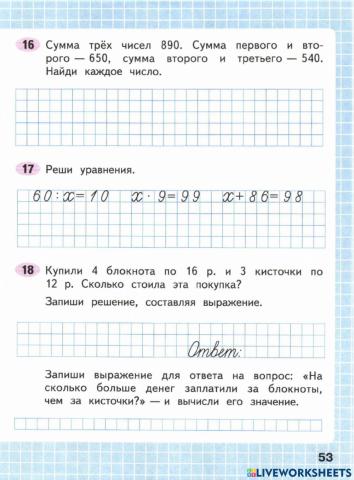 16 Сумма трёх чисел 890. Сумма первого и вто-
рого — 650, сумма второго и третьего — 540.
Найди каждое число.
17 Реши уравнения.
60 : x = 10 x · 9 = 99 x + 86 = 98
18 Купили 4 блокнота по 16 р. и 3 кисточки по
12 р. Сколько стоила эта покупка?
Запиши решение, составляя выражение.
Ответ:
Запиши выражение для ответа на вопрос: «На
сколько больше денег заплатили за блокноты,
чем за кисточки?» — и вычисли его значение.
53
LIVEWORKSHEETS